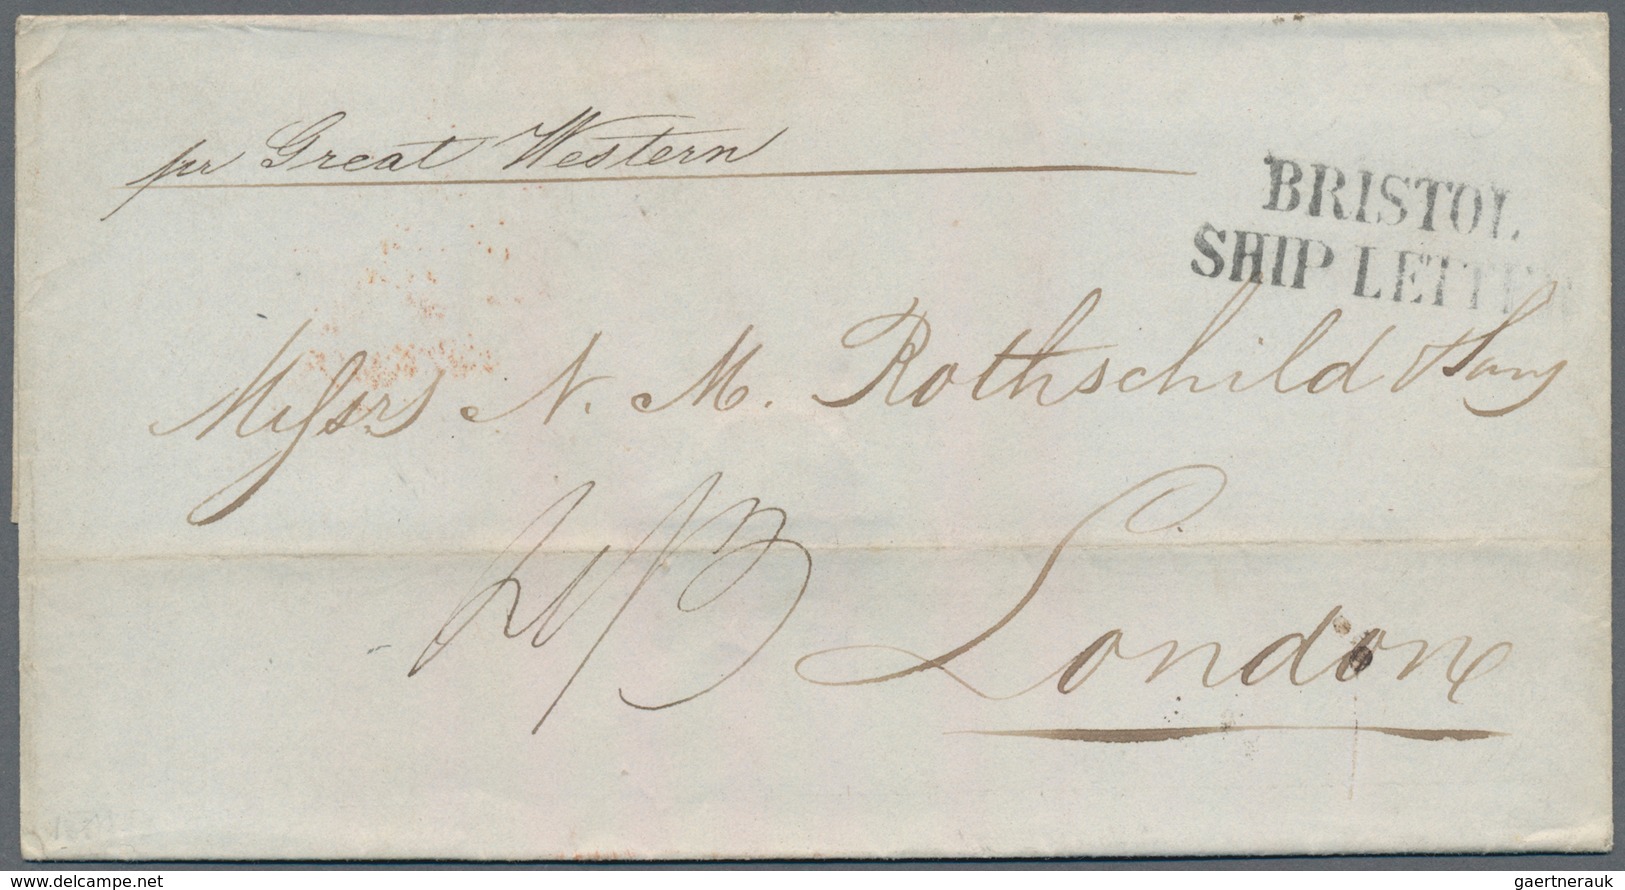 pr Great Western
BRISTOL
SHIP LETTER
Messrs N. M. Rothschild & Sons
London
www.delcampe.net
gaertnerauk